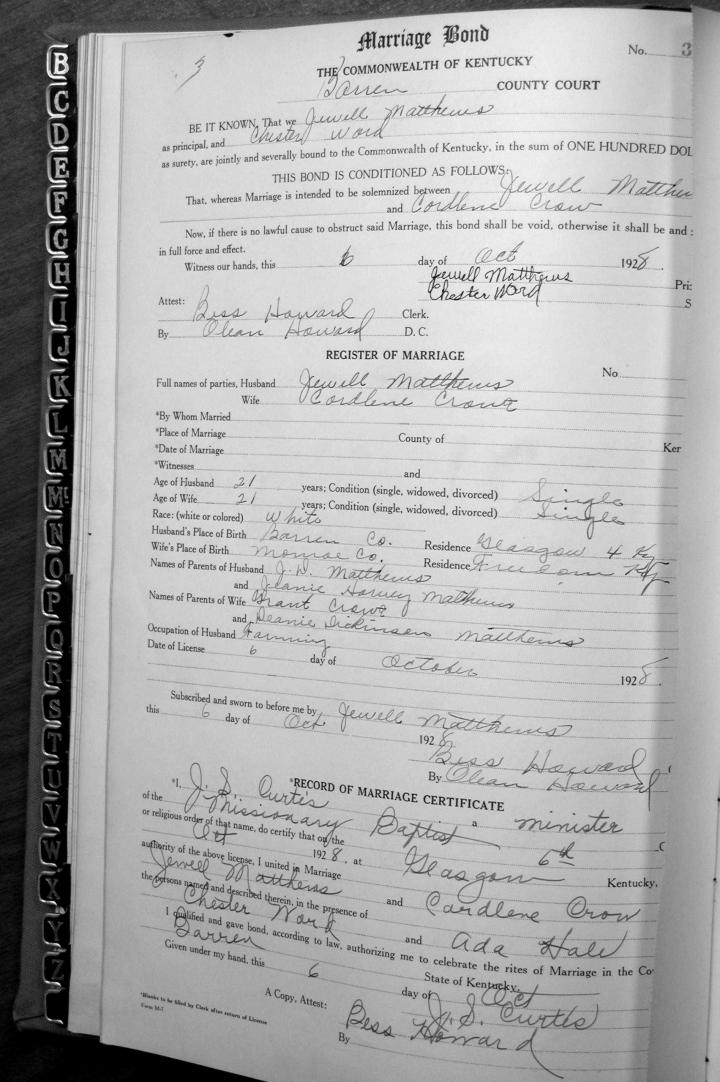 Marriage Bond
No. 3
3
THE COMMONWEALTH OF KENTUCKY
Barren COUNTY COURT
BE IT KNOWN, That we Jewell Matthews
as principal, and Chester Word
as surety, are jointly and severally bound to the Commonwealth of Kentucky, in the sum of ONE HUNDRED DOL
THIS BOND IS CONDITIONED AS FOLLOWS:
That, whereas Marriage is intended to be solemnized between Jewell Matthew
and Cordlene Crow
Now, if there is no lawful cause to obstruct said Marriage, this bond shall be void, otherwise it shall be and
in full force and effect.
Witness our hands, this 6 day of Oct 1928.
Jewell Matthews Pri
Chester Word S
Attest: Bess Howard Clerk.
By Clean Howard D. C.
REGISTER OF MARRIAGE
No.
Full names of parties, Husband Jewell Matthews
Wife Cordlene Crowe
*By Whom Married
*Place of Marriage County of Ker
*Date of Marriage
*Witnesses and
Age of Husband 21 years; Condition (single, widowed, divorced) Single
Age of Wife 21 years; Condition (single, widowed, divorced) Single
Race: (white or colored) White
Husband's Place of Birth Barren Co. Residence Glasgow 4 Ky
Wife's Place of Birth Monroe Co. Residence Freedom Ky
Names of Parents of Husband J. D. Matthews
and Jeanie Harvey Mathews
Names of Parents of Wife Grant Crowe
and Deanie Dickinson Matthews
Occupation of Husband Farming
Date of License 6 day of October 1928.
Subscribed and sworn to before me by Jewell Matthews
this 6 day of Oct 1928
Bess Howard
By Clean Howard
*RECORD OF MARRIAGE CERTIFICATE
*I, J. S. Curtis a minister
of the Missionary Baptist
or religious order of that name, do certify that on the 6th
Oct 1928, at Glasgow Kentucky,
authority of the above license, I united in Marriage
Jewell Matthews and Cardlene Crow
the persons named and described therein, in the presence of
Chester Word and Ada Hale
I qualified and gave bond, according to law, authorizing me to celebrate the rites of Marriage in the Co
Barren State of Kentucky.
Given under my hand, this 6 day of Oct
J. S. Curtis
A Copy, Attest: Bess Howard
By
*Blanks to be filled by Clerk after return of License
Form M-7
B
C
D
E
F
G
H
I
J
K
L
M
Mc
N
O
P
Q
R
S
T
U
V
W
X
Y
Z